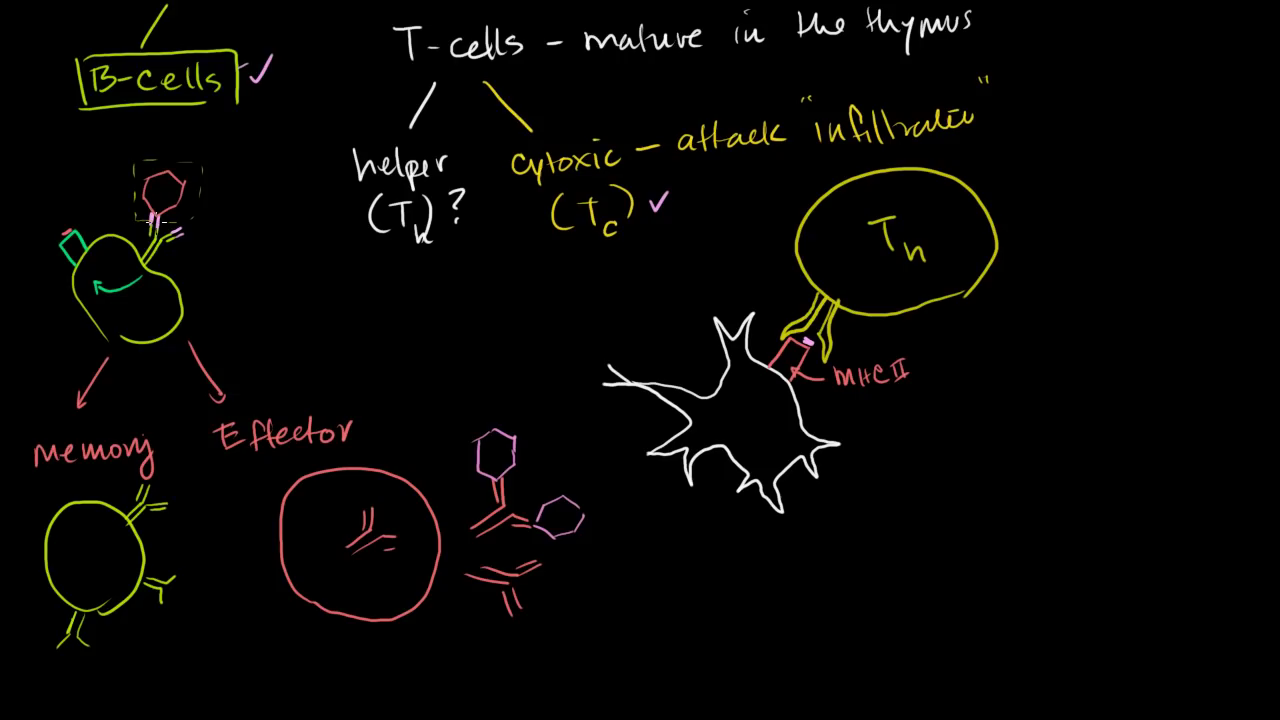 T-cells - mature in the thymus
B-cells
helper
(Th) ?
cytoxic - attack "infiltrated"
(Tc)
Tn
MHC II
Memory
Effector